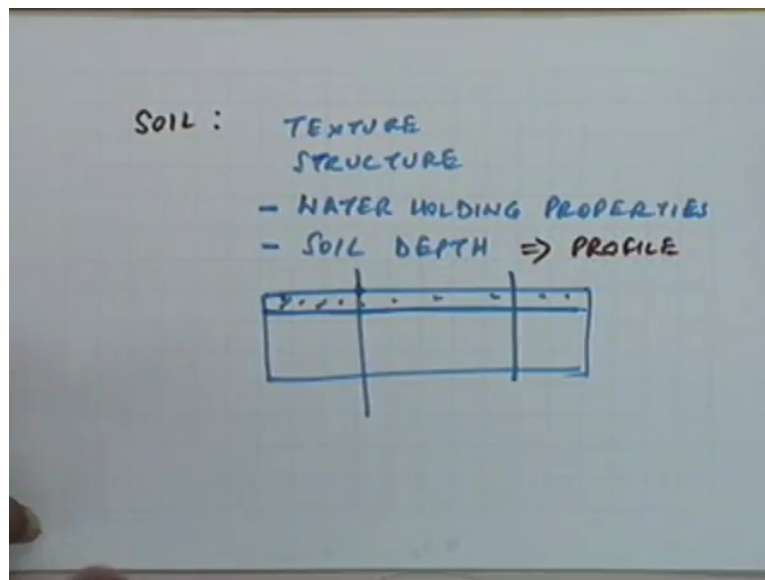 SOIL : TEXTURE
STRUCTURE
- WATER HOLDING PROPERTIES
- SOIL DEPTH => PROFILE